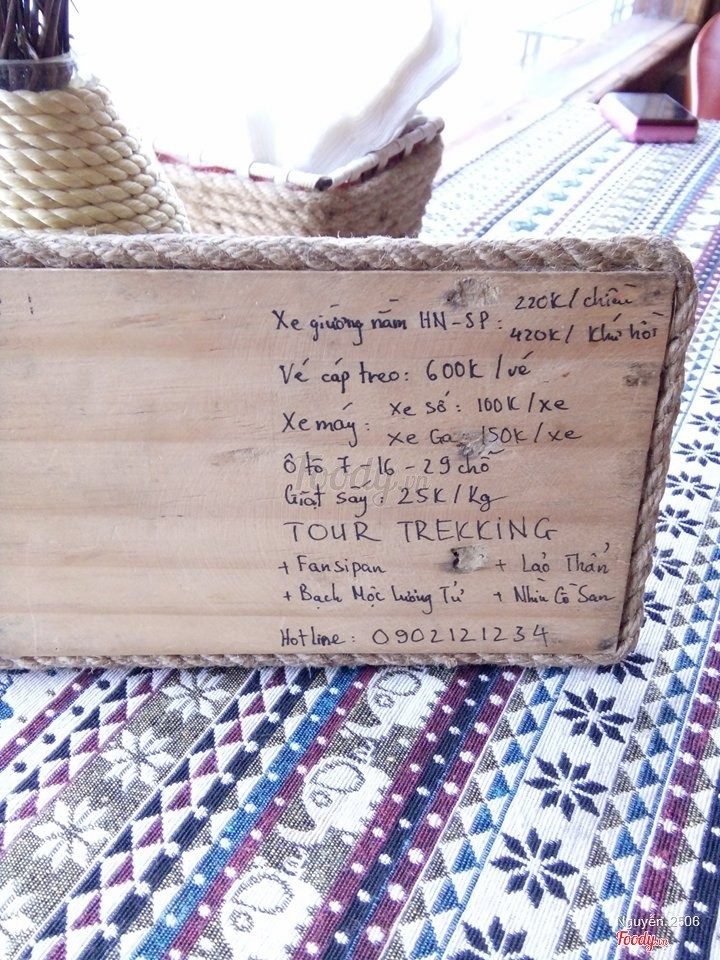 Xe giường nằm HN-SP: 220K/chiều
420K/ Khứ hồi
Vé cáp treo: 600K/vé
Xe máy: Xe số: 100K/xe
Xe Ga 150K/xe
Ô tô 7-16-29 chỗ
Giặt sấy: 25K/Kg
TOUR TREKKING
+ Fansipan + Lảo Thẩn
+ Bạch Mộc Lương Tử + Nhìu Cồ San
Hotline: 0902121234
Foody.vn
Nguyễn.2506
Foody.vn